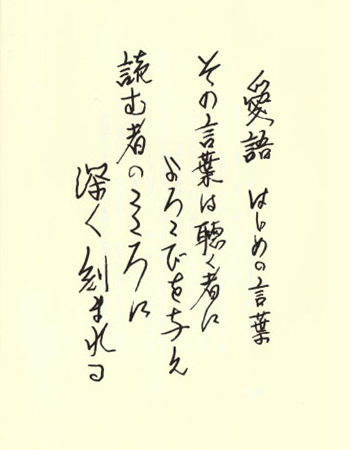 愛語 はじめの言葉
その言葉は聴く者に
よろこびを与え
読む者のこころに
深く刻まれる